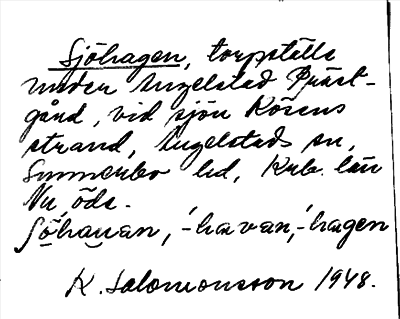 Sjöhagen, torpställe
under Angelstad Präst-
gård, vid sjön Kösens
strand, Angelstads sn,
Sunnerbo hd, Krb. län
Nu öde.
Söhauan, -havan, -hagen
K. Salomonsson 1948.